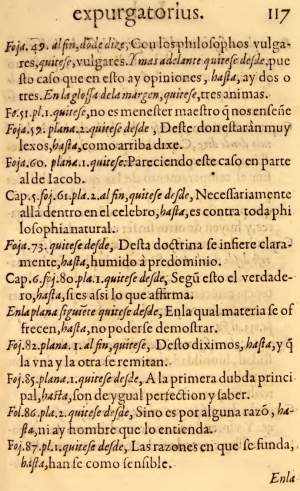 expurgatorius. 117
Foja.49. al fin, dõde dize, Con los philosophos vulga-
res, quitese, vulgares. Y mas adelante quitese desde, pue
sto caso que en esto ay opiniones, hasta, ay dos o
tres. En la glossa dela margen, quitese, tres animas.
Fo.51.pl.1. quitese, no es menester maestro q̃ nos enseñe
Foja.59. plana.2. quitese desde, Deste don estaràn muy
lexos, hasta, como arriba dixe.
Foja.60. plana.1. quitese: Pareciendo este caso en parte
al de Iacob.
Cap.5. foj.61. pla.2. al fin, quitese desde, Necessariamente
alla dentro en el celebro, hasta, es contra toda phi
losophia natural.
Foja.73. quitese desde, Desta doctrina se infiere clara-
mente, hasta, humido à predominio.
Cap.6. foj.80. pla.1. quitese desde, Segũ esto el verdade-
ro, hasta, si es assi lo que affirma.
En la plana siguiẽte quitese desde, En la qual materia se of
frecen, hasta, no poderse demostrar.
Foj.82. plana.1. al fin, quitese, Desto diximos, hasta, y q̃
la vna y la otra se remitan.
Foj.85. plana.1. quitese desde, A la primera dubda princi
pal, hasta, son de ygual perfection y saber.
Fol.86. pla.2. quitese desde, Sino es por alguna razõ, ha-
sta, ni ay hombre que lo entienda.
Foj.87. pl.1. quitese desde, Las razones en que se funda,
hasta, han se como sensible.
Enla